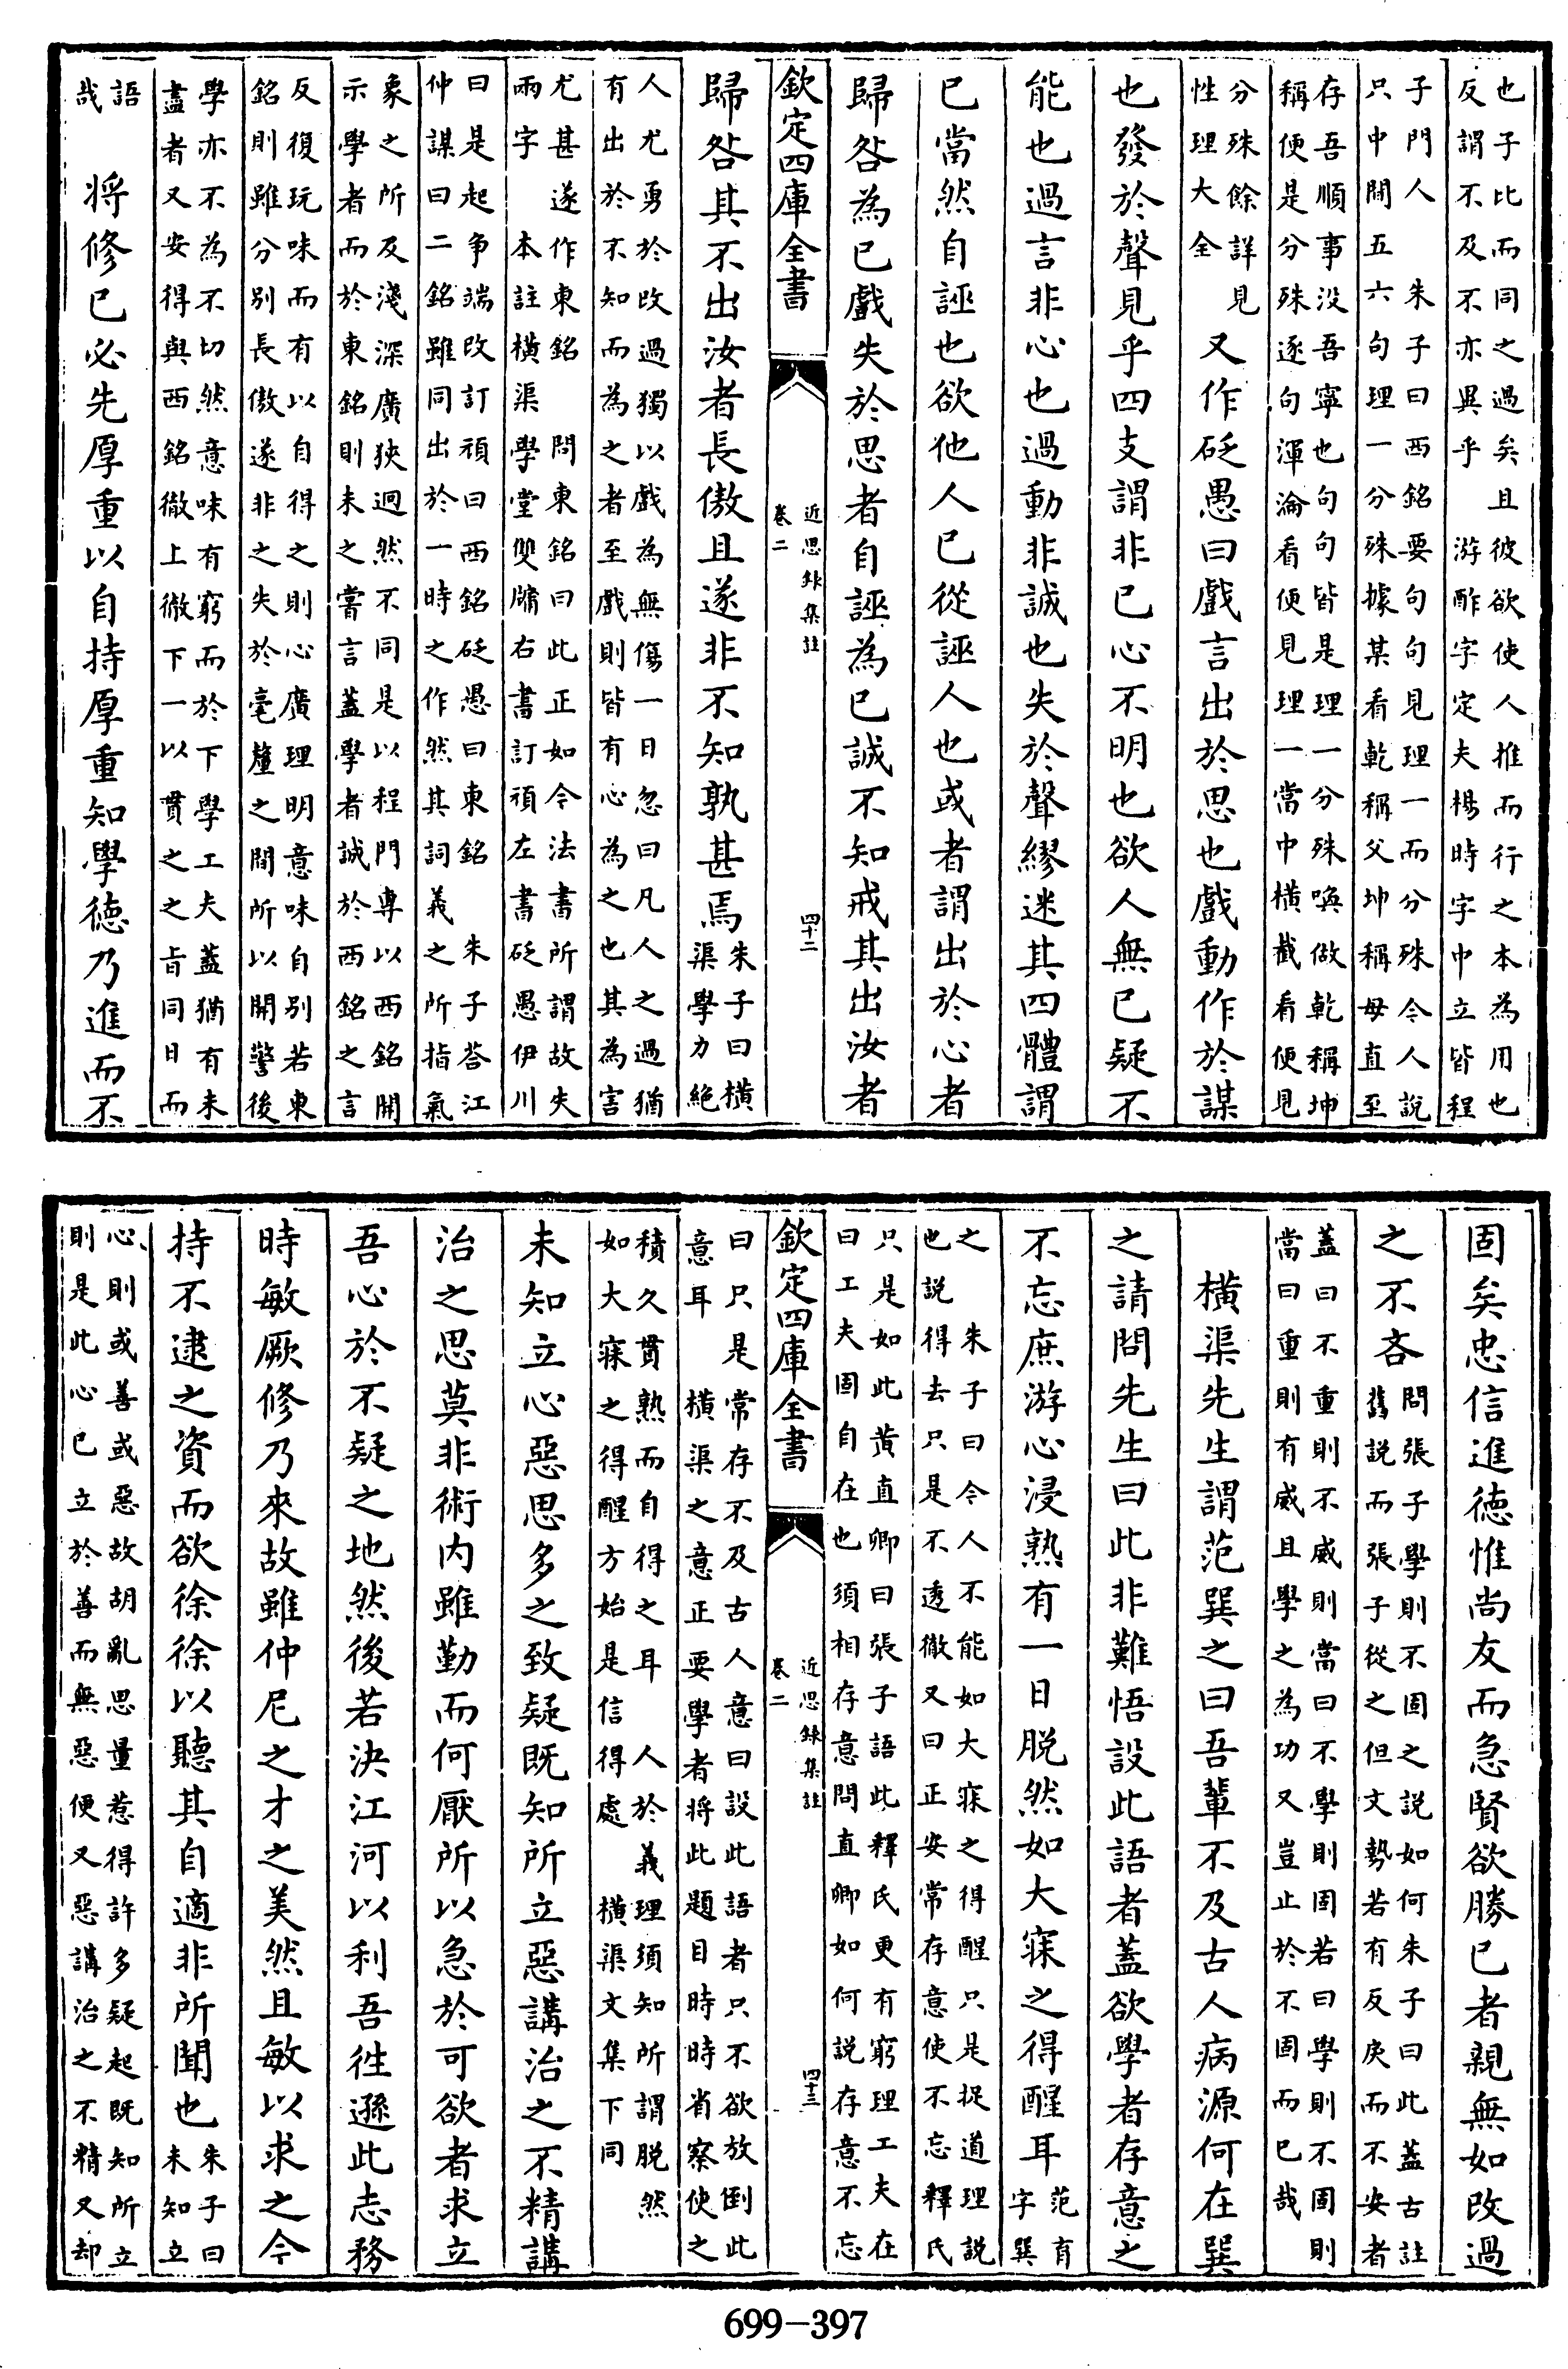 也子比而同之過矣且彼欲使人推而行之本為用也
反謂不及不亦異乎　游酢字定夫楊時字中立皆程
子門人　朱子曰西銘要句句見理一而分殊今人說
只中間五六句理一分殊據某看乾稱父坤稱母直至
存吾順事没吾寧也句句皆是理一分殊喚做乾稱坤
稱便是分殊逐句渾淪看便見理一當中橫截看便見
分殊餘詳見
性理大全
又作砭愚曰戲言出於思也戲動作於謀
也發於聲見乎四支謂非已心不明也欲人無已疑不
能也過言非心也過動非誠也失於聲繆迷其四體謂
已當然自誣也欲他人已從誣人也或者謂出於心者
歸咎為已戲失於思者自誣為已誠不知戒其出汝者
欽定四庫全書
近思録集註
卷二
四十二
歸咎其不出汝者長傲且遂非不知孰甚焉
朱子曰橫
渠學力絶
人尤勇於改過獨以戲為無傷一日忽曰凡人之過猶
有出於不知而為之者至戲則皆有心為之也其為害
尤甚遂作東銘　問東銘曰此正如今法書所謂故失
兩字　本註橫渠學堂雙牖右書訂頑左書砭愚伊川
曰是起爭端改訂頑曰西銘砭愚曰東銘　朱子答江
仲謀曰二銘雖同出於一時之作然其詞義之所指氣
象之所及淺深廣狹迥然不同是以程門專以西銘開
示學者而於東銘則未之嘗言蓋學者誠於西銘之言
反復玩味而有以自得之則心廣理明意味自別若東
銘則雖分別長傲遂非之失於毫釐之間所以開警後
學亦不為不切然意味有窮而於下學工夫蓋猶有未
盡者又安得與西銘徹上徹下一以貫之之旨同日而
語
哉
將修已必先厚重以自持厚重知學徳乃進而不
固矣忠信進徳惟尚友而急賢欲勝已者親無如改過
之不吝
問張子學則不固之說如何朱子曰此蓋古註
舊說而張子從之但文勢若有反戾而不安者
蓋曰不重則不威則當曰不學則固若曰學則不固則
當曰重則有威且學之為功又豈止於不固而已哉
橫渠先生謂范巽之曰吾輩不及古人病源何在巽
之請問先生曰此非難悟設此語者蓋欲學者存意之
不忘庶游心浸熟有一日脱然如大寐之得醒耳
范育
字巽
之　朱子曰今人不能如大寐之得醒只是捉道理說
也說得去只是不透徹又曰正安常存意使不忘釋氏
只是如此黃直卿曰張子語比釋氏更有窮理工夫在
曰工夫固自在也須相存意問直卿如何說存意不忘
曰只是常存不及古人意曰設此語者只不欲放倒此
意耳　橫渠之意正要學者將此題目時時省察使之
積久貫熟而自得之耳　人於義理須知所謂脱然
如大寐之得醒方始是信得處　橫渠文集下同
未知立心惡思多之致疑既知所立惡講治之不精講
治之思莫非術内雖勤而何厭所以急於可欲者求立
吾心於不疑之地然後若決江河以利吾往遜此志務
時敏厥修乃來故雖仲尼之才之美然且敏以求之今
持不逮之資而欲徐徐以聽其自適非所聞也
朱子曰
未知立
心則或善或惡故胡亂思量惹得許多疑起既知所立
則是此心已立於善而無惡便又惡講治之不精又却
欽定四庫全書
近思録集註
卷二
四十三
699-397